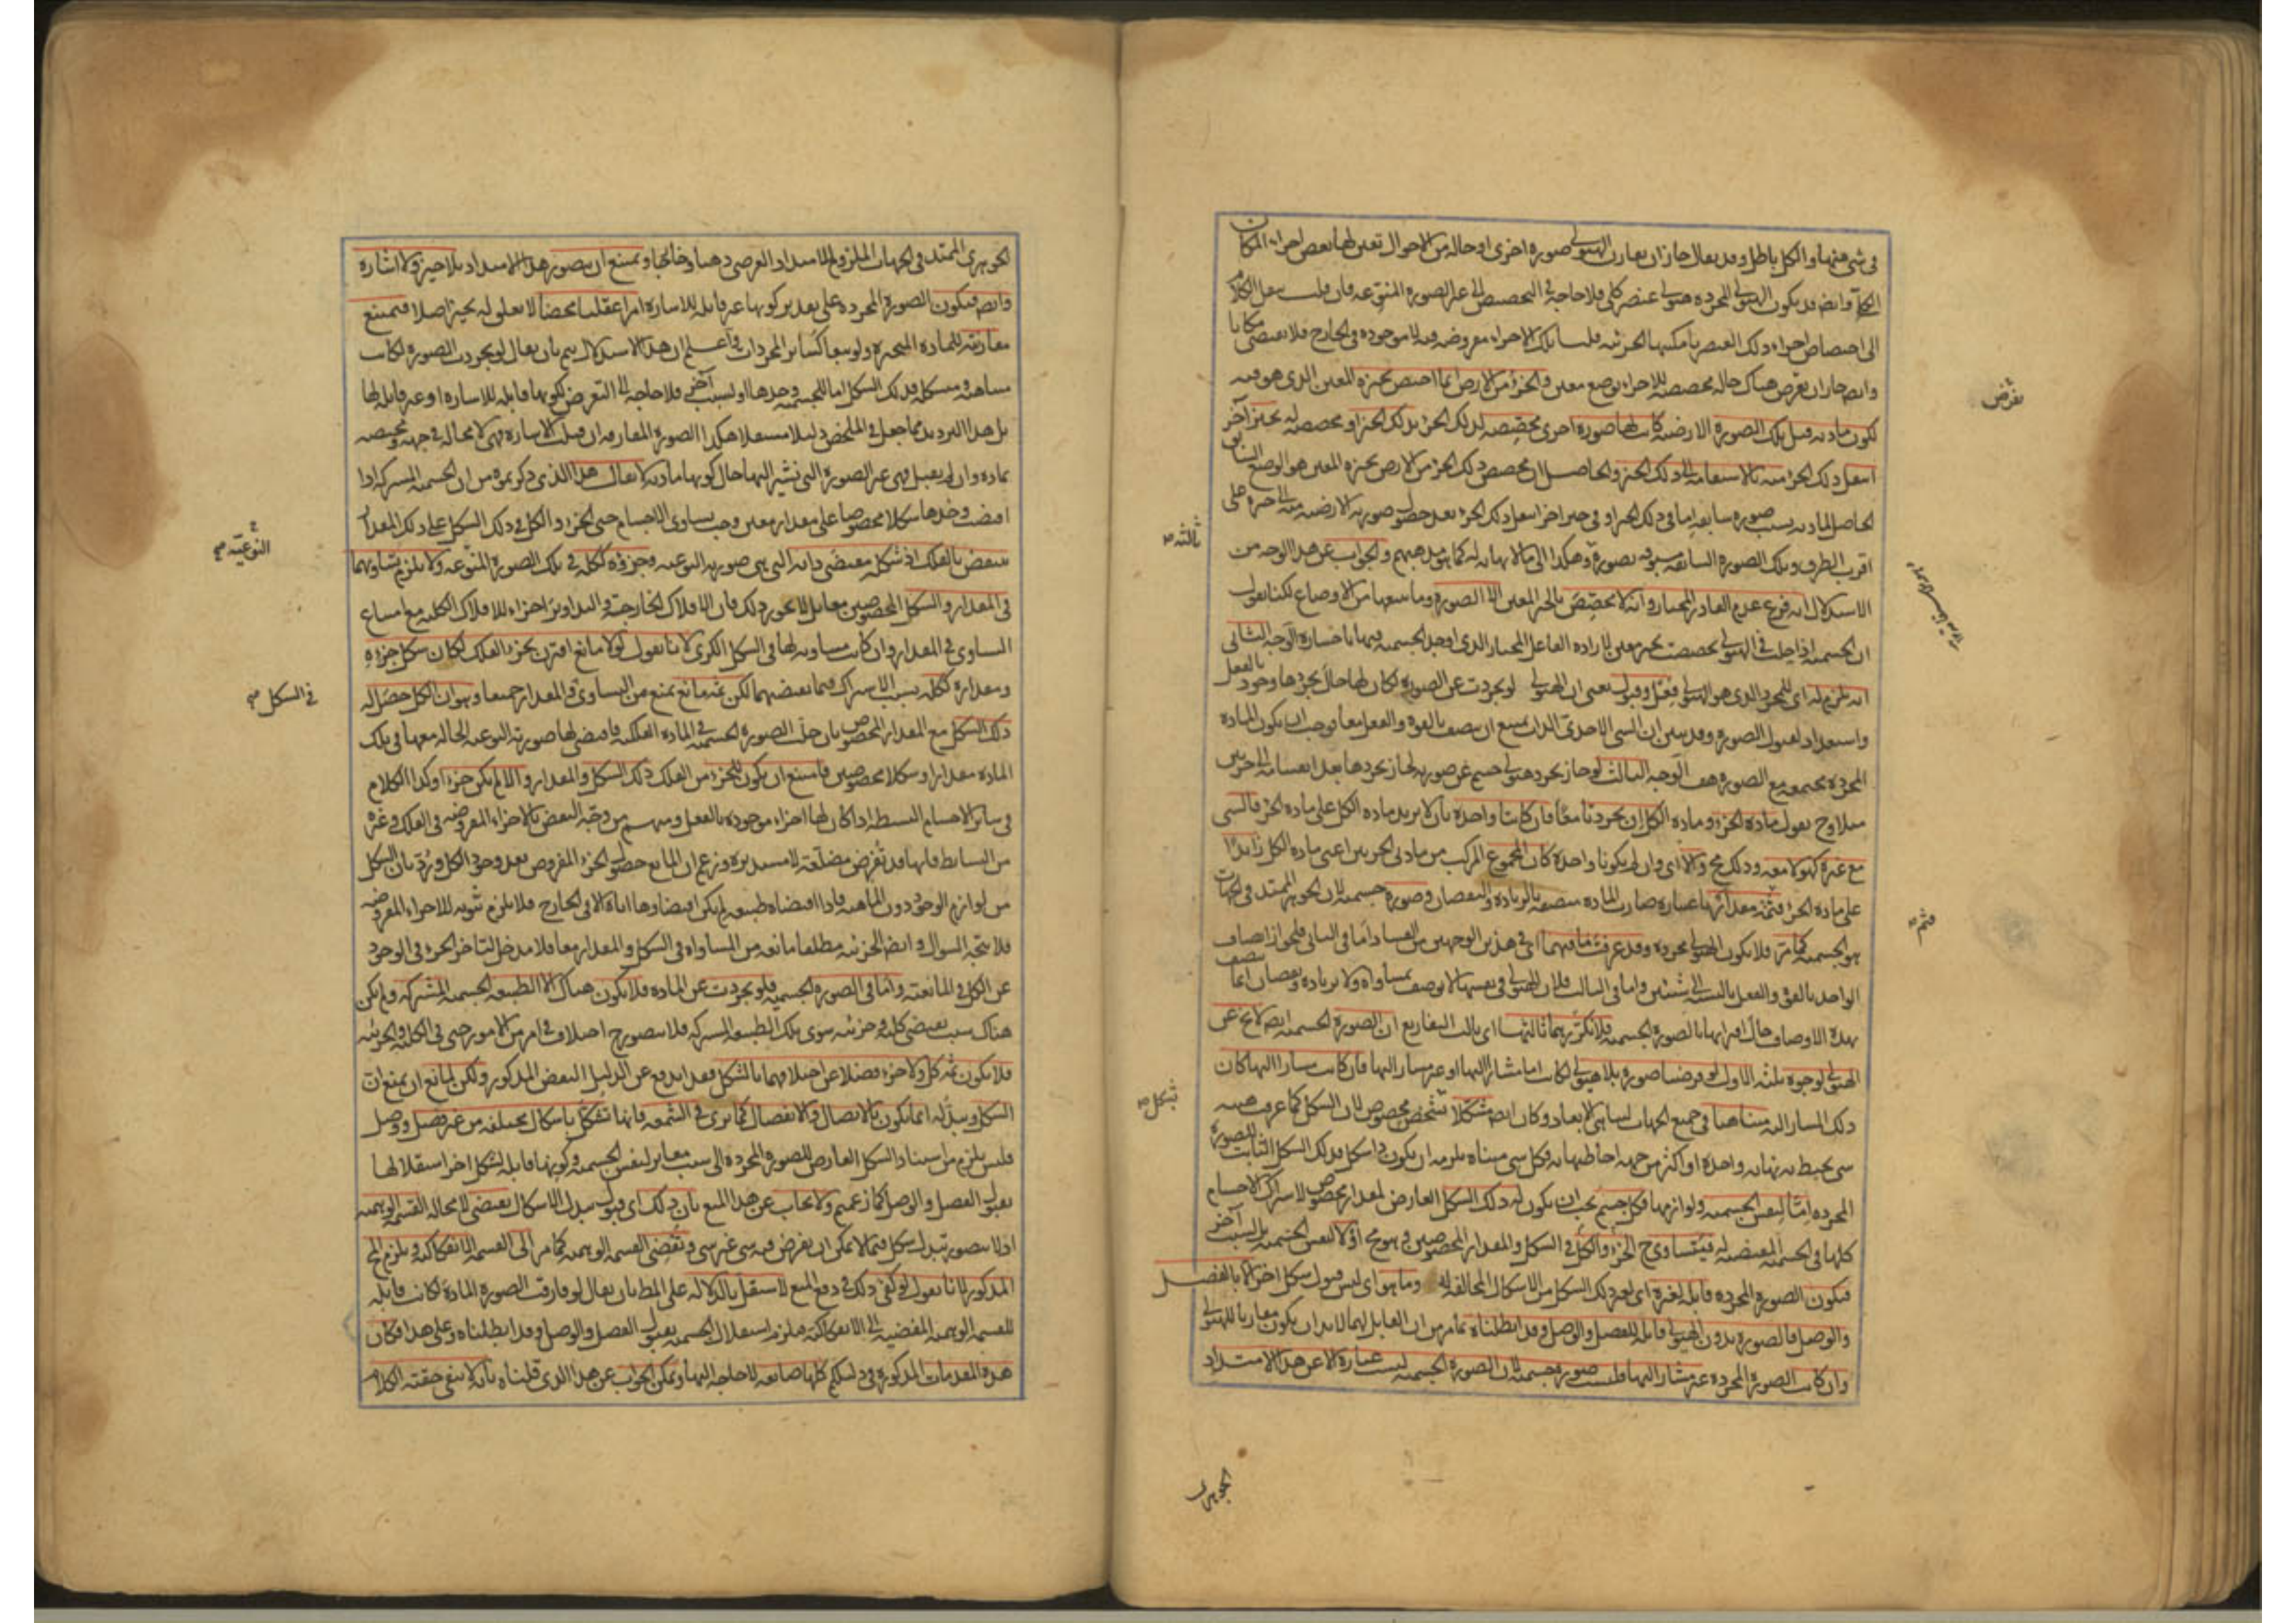 في شيء منهما والكل باطل وقد يقال جاز ان يقارن الهيولى صورة اخرى او حالة من الاحوال تعين لها بعض اجزاء المكان
الكلي وايضا قد يكون الهيولى المجردة هيولى عنصر كلي فلا حاجة في التخصص الى غير الصورة النوعية فان قلت ننقل الكلام
الى اختصاص اجزاء ذلك العنصر بامكنتها الجزئية قلنا تلك الاجزاء مفروضة فيه لا موجودة في الخارج فلا تقتضي مكانا
وايضا جاز ان نفرض هناك حالة مخصصة للاجزاء بوضع معين والجزء من الارض انما اختص بحيزه المعين الذي هو فيه
لكون مادته قبل تلك الصورة الارضية كانت لها صورة اخرى مخصصة لذلك الجزء بذلك الحيز او مخصصة له بحيز آخر
انتقل ذلك الجزء منه بالاستقامة الى ذلك الحيز والحاصل ان مخصص ذلك الجزء من الارض بحيزه المعين هو الوضع السابق
الحاصل لمادته بسبب صورة سابقة اما في ذلك الحيز او في حيز آخر انتقل ذلك الجزء بعد حصول صورته الارضية منه الى حيزه على
اقرب الطرق وتلك الصورة السابقة مسبوقة بصورة وهكذا الى ما لا نهاية له كما هو مذهبهم والجواب عن هذا الوجه من
الاستدلال انه فرع عدم القادر المختار وانه لا مخصص بالحيز المعين الا الصورة وما يتبعها من الاوضاع لكنا نقول
ان الجسمية اذا حلت في الهيولى تخصصت بحيز معين لارادة الفاعل المختار الذي اوجد الجسمية فيها باختياره الوجه الثاني
انه يلزم له اي للمجرد الذي هو الهيولى فعل وقبول يعني ان الهيولى لو تجردت عن الصورة لكان لها حال تجردها وجود بالفعل
واستعداد لقبول الصورة وقد تبين ان الشيء الاحدي الذات يمتنع ان يتصف بالقوة والفعل معا فوجب ان يكون المادة
المجردة مجتمعة مع الصورة هف الوجه الثالث لو جاز تجرد هيولى جسم عن صورته لجاز تجردها بعد انقسامه الى جزئين
مثلا وح نقول مادة الجزء ومادة الكل ان تجردتا معا فان كانتا واحدة بان لا يزيد مادة الكل على مادة الجزء فالشيء
مع غيره كهو لا معه وذلك مح والا اي وان لم يكونا واحدة كان المجموع المركب من مادتي الجزئين اعني مادة الكل زائدا
على مادة الجزء فثمة مقدار بها عبارة صارت المادة متصفة بالزيادة والنقصان وصورة جسمية لان الجوهر الممتد في الجهات
هو الجسمية كما مر فلا يكون الهيولى مجردة وقد عرفت ما فيهما اي في هذين الوجهين من الفساد اما في الثاني فلجواز اتصاف
الواحد بالقوة والفعل بالنسبة الى شيئين واما في الثالث فلان الهيولى في نفسها لا توصف بمساواة ولا بزيادة ونقصان انما يتصف
بهذه الاوصاف حال اقترانها بالصورة الجسمية فلا نكررهما ثالثها اي ثالث التفاريع ان الصورة الجسمية ايضا لا تخ عن
الهيولى لوجوه ثلثة الاول لو فرضنا صورة بلا هيولى لكانت اما مشارا اليها او غير مشار اليها فان كانت مشارا اليها كان
ذلك المشار اليه متناهيا في جميع الجهات لتناهي الابعاد وكان ايضا متشكلا بتشخص مخصوص لان الشكل كما عرفت هيئة
شيء يحيط به نهاية واحدة او اكثر من جهة احاطتها به فكل شيء متناه يلزمه ان يكون ذا شكل فذلك الشكل الثابت للصورة
المجردة اما لنفس الجسمية ولوازمها فكل جسم يجب ان يكون له ذلك الشكل العارض لمقدار مخصوص لاشتراك الاجسام
كلها في الجسمية المقتضية له فيتساوى ح الجزء والكل في الشكل والمقدار المخصوصين وهو مح او لا لنفس الجسمية بل لسبب آخر
فيكون الصورة المجردة قابلة لغيره اي لغير ذلك الشكل من الاشكال المخالفة له وما هو اي ليس قبول شكل آخر الا بالفصل
والوصل فالصورة بدون الهيولى قابلة للفصل والوصل وقد ابطلناه بما مر من ان القابل لهما لابد ان يكون مقارنا للهيولى
وان كانت الصورة المجردة غير مشار اليها فليست صورة جسمية لان الصورة الجسمية ليست عبارة الا عن هذا الامتداد
نفرض
ثالثة صح
فثم صح
بشكل صح
الجوهري
الجوهري الممتد في الجهات الملزوم للامتداد العرضي ذهنا وخارجا ويمتنع ان يتصور هذا الامتداد بلا حيز ولا اشارة
وايضا فيكون الصورة المجردة على تقدير كونها غير قابلة للاشارة امرا عقليا محضا لا تعلق له بحيز اصلا فيمتنع
مقارنته للمادة المتحيزة ولو تبعا كسائر المجردات واعلم ان هذا الاستدلال يتم بان يقال لو تجردت الصورة لكانت
متناهية ومتشكلة فذلك الشكل اما للجسمية وحدها او لسبب آخر فلا حاجة الى التعرض لكونها قابلة للاشارة او غير قابلة لها
بل هذا الترديد مما جعل في الملخص دليلا مستقلا هكذا الصورة المفارقة ان قبلت الاشارة فهي لا محالة في جهة ومختصة
بمادة وان لم يقبل فهي غير الصورة التي نشير اليها حال كونها مادية لا يقال هذا الذي ذكرتموه من ان الجسمية المشتركة اذا
اقتضت وحدها شكلا مخصوصا على مقدار معين وجب تساوي الاجسام حتى الجزء والكل في ذلك الشكل على ذلك المقدار
منتقض بالفلك اذ شكله مقتضى ذاته التي هي صورته النوعية وجزؤه ككله في تلك الصورة المنوعة ولا يلزم تساويهما
في المقدار والشكل المخصوصين مقابل للاخر وذلك فان الافلاك الخارجة والتداوير اجزاء للافلاك الكلية مع امتناع
التساوي في المقدار وان كانت مساوية لها في الشكل الكري لانا نقول لولا مانع اقترن بجزء الفلك لكان شكل جزئه
ومقداره ككله بسبب الاشتراك فيما يقتضيهما لكن ثمة مانع يمنع من التساوي في المقدار جميعا وهو ان الكل حصل له
ذلك الشكل مع المقدار المخصوص بان حلت الصورة الجسمية في المادة الفلكية فاقتضى لها صورته النوعية الحالة معها في تلك
المادة مقدارا وشكلا مخصوصين فامتنع ان يكون للجزء من الفلك ذلك الشكل والمقدار والا لم يكن جزءا وكذا الكلام
في سائر الاجسام البسيطة اذا كان لها اجزاء موجودة بالفعل ومنهم من وجه النقض بالاجزاء المفروضة في الفلك وغيره
من البسائط فانها قد تفرض مضلعة لا مستديرة وزعم ان المانع حصول الجزء المفروض بعد وجود الكل ورد بان الشكل
من لوازم الوجود دون الماهية فاذا اقتضاه طبيعة لم يكن اقتضاؤها اياه الا في الخارج فلا يلزم ثبوته للاجزاء المفروضة
فلا يتجه السؤال وايضا الجزئية مطلقا مانعة من المساواة في الشكل والمقدار معا فلا مدخل لتأخر الجزء في الوجود
عن الكل في المانعية واما في الصورة الجسمية فلو تجردت عن المادة فلا يكون هناك الا الطبيعة الجسمية المشتركة ولم يكن
هناك سبب يقتضي كلية وجزئية سوى تلك الطبيعة المشتركة فلا يتصور ح اختلاف في امر من الامور حتى في الكلية والجزئية
فلا يكون ثمة كل ولا جزء فضلا عن اختلافهما بالشكل فقد اندفع عن الدليل النقض المذكور ولكن لمانع ان يمنع ان
الشكل وتبدله انما يكون بالاتصال والانفصال كما ترى في الشمعة فانها تتشكل باشكال مختلفة من غير فصل ووصل
فليس يلزم من استناد الشكل العارض للصورة المجردة الى سبب مغاير لنفس الجسمية وكونها قابلة لشكل آخر استقلالها
بقبول الفصل والوصل كما زعمتم ولا يجاب عن هذا المنع بان ذلك اي قبول تبدل الاشكال يقتضي لا محالة القسمة الوهمية
اذ لا يتصور تبدل شكل فيما لا يمكن ان يفرض فيه شيء غير شيء وتفضي القسمة الوهمية كما مر الى القسمة الانفكاكية ويلزم المح
المذكور لانا نقول لو كفى ذلك في دفع المنع لاستقل بالدلالة على المط بان يقال لو فارقت الصورة المادة لكانت قابلة
للقسمة الوهمية المفضية الى الانفكاكية فيلزم استقلال الجسمية بقبول الفصل والوصل وقد ابطلناه وعلى هذا فكان
هذه المقدمات المذكورة في دليلكم كلها ضائعة لا حاجة اليها ويمكن الجواب عن هذا الذي قلناه بانه لا ينفي حقية الكلام
النوعية صح
في الشكل صح